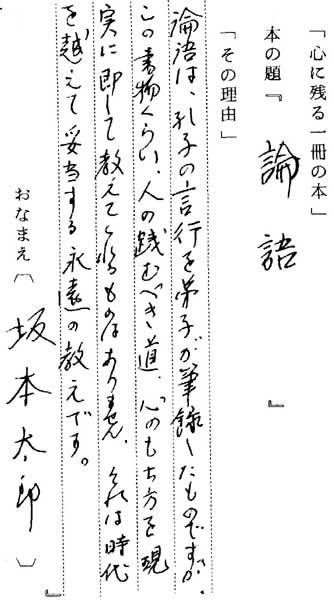 「心に残る一冊の本」
本の題『 論語 』
「その理由」
論語は、孔子の言行を弟子が筆録したものですが、
この書物くらい、人の践むべき道、心のもち方を現
実に即して教えてくれるものはありません。それは時代
を越えて妥当する永遠の教えです。
おなまえ〔 坂本太郎 〕
』